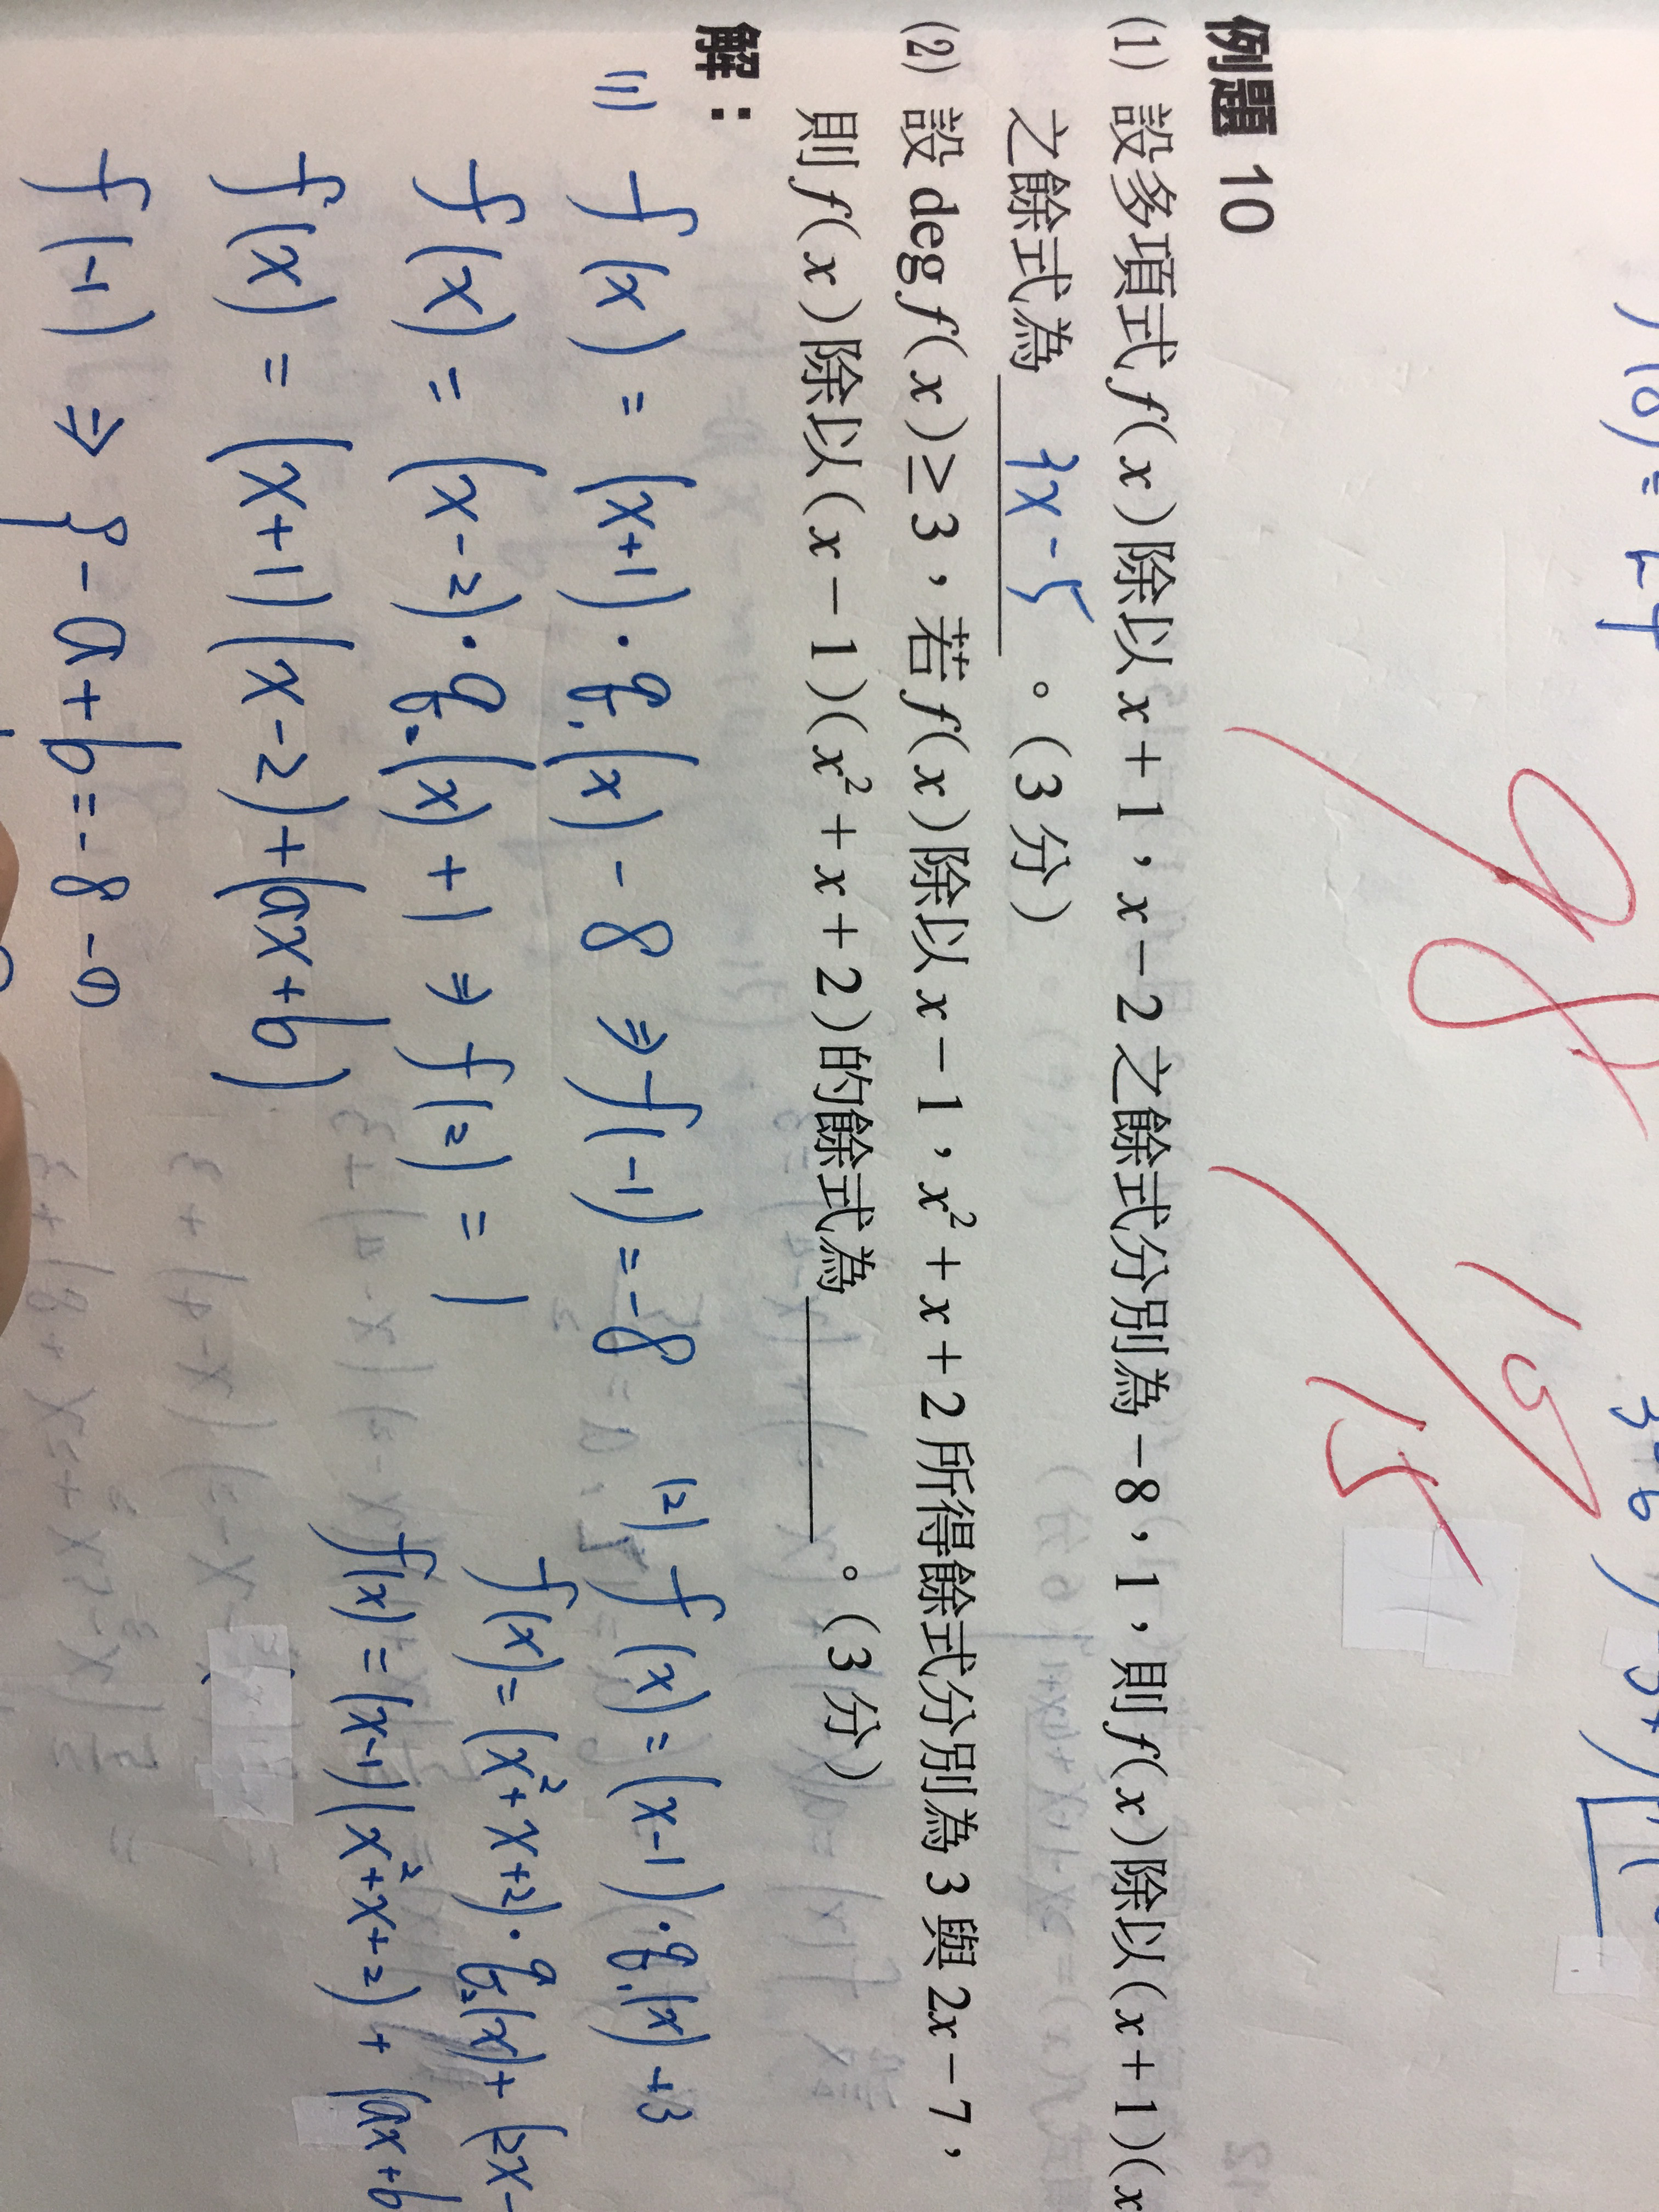 例題 10
(1) 設多項式 f(x) 除以 x+1，x−2 之餘式分別為 −8，1，則 f(x) 除以 (x+1)(x
之餘式為 3x-5 。(3分)
(2) 設 deg f(x) ≥ 3，若 f(x) 除以 x−1，x²+x+2 所得餘式分別為 3 與 2x−7，
則 f(x) 除以 (x−1)(x²+x+2) 的餘式為 。(3分)
解：
(1) f(x) = (x+1)·q₁(x) - 8 ⇒ f(-1) = -8
f(x) = (x-2)·q₂(x) + 1 ⇒ f(2) = 1
f(x) = (x+1)(x-2)+(ax+b)
f(-1) ⇒ { -a+b = -8 -①
(2) f(x) = (x-1)·q₁(x)+3
f(x) = (x²+x+2)·q₂(x)+(2x-
f(x) = (x-1)(x²+x+2)+(ax+b
98
15